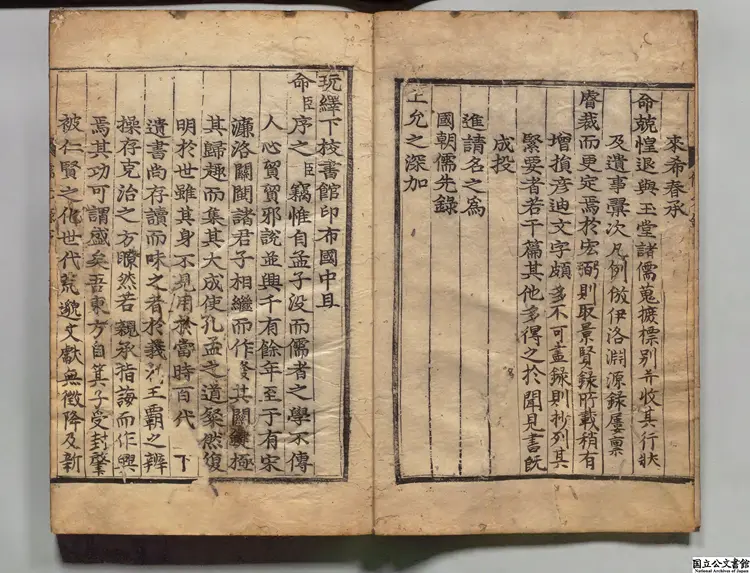 來希春承
命兢惶退與玉堂諸儒蒐摭標別并收其行狀
及遺事彙次凡例倣伊洛淵源錄屢稟
睿裁而更定焉於宏弼則取景賢錄所載稍有
增損彦迪文字頗多不可盡錄則抄列其
緊要者若干篇其他多得之於聞見書旣
成投
進請名之爲
國朝儒先錄
上允之深加
玩繹下校書館印布國中且
命臣序之臣竊惟自孟子沒而儒者之學不傳
人心貿貿邪說並興千有餘年至于有宋
濂洛關閩諸君子相繼而作其關鍵極
其歸趣而集其大成使孔孟之道粲然復
明於世雖其身不見用於當時百代下
遺書尚存讀而味之者於義利王霸之辨
操存克治之方瞭然若親承指誨而作興
焉其功可謂盛矣吾東方自箕子受封肇
被仁賢之化世代荒邈文獻無徵降及新
国立公文書館
National Archives of Japan